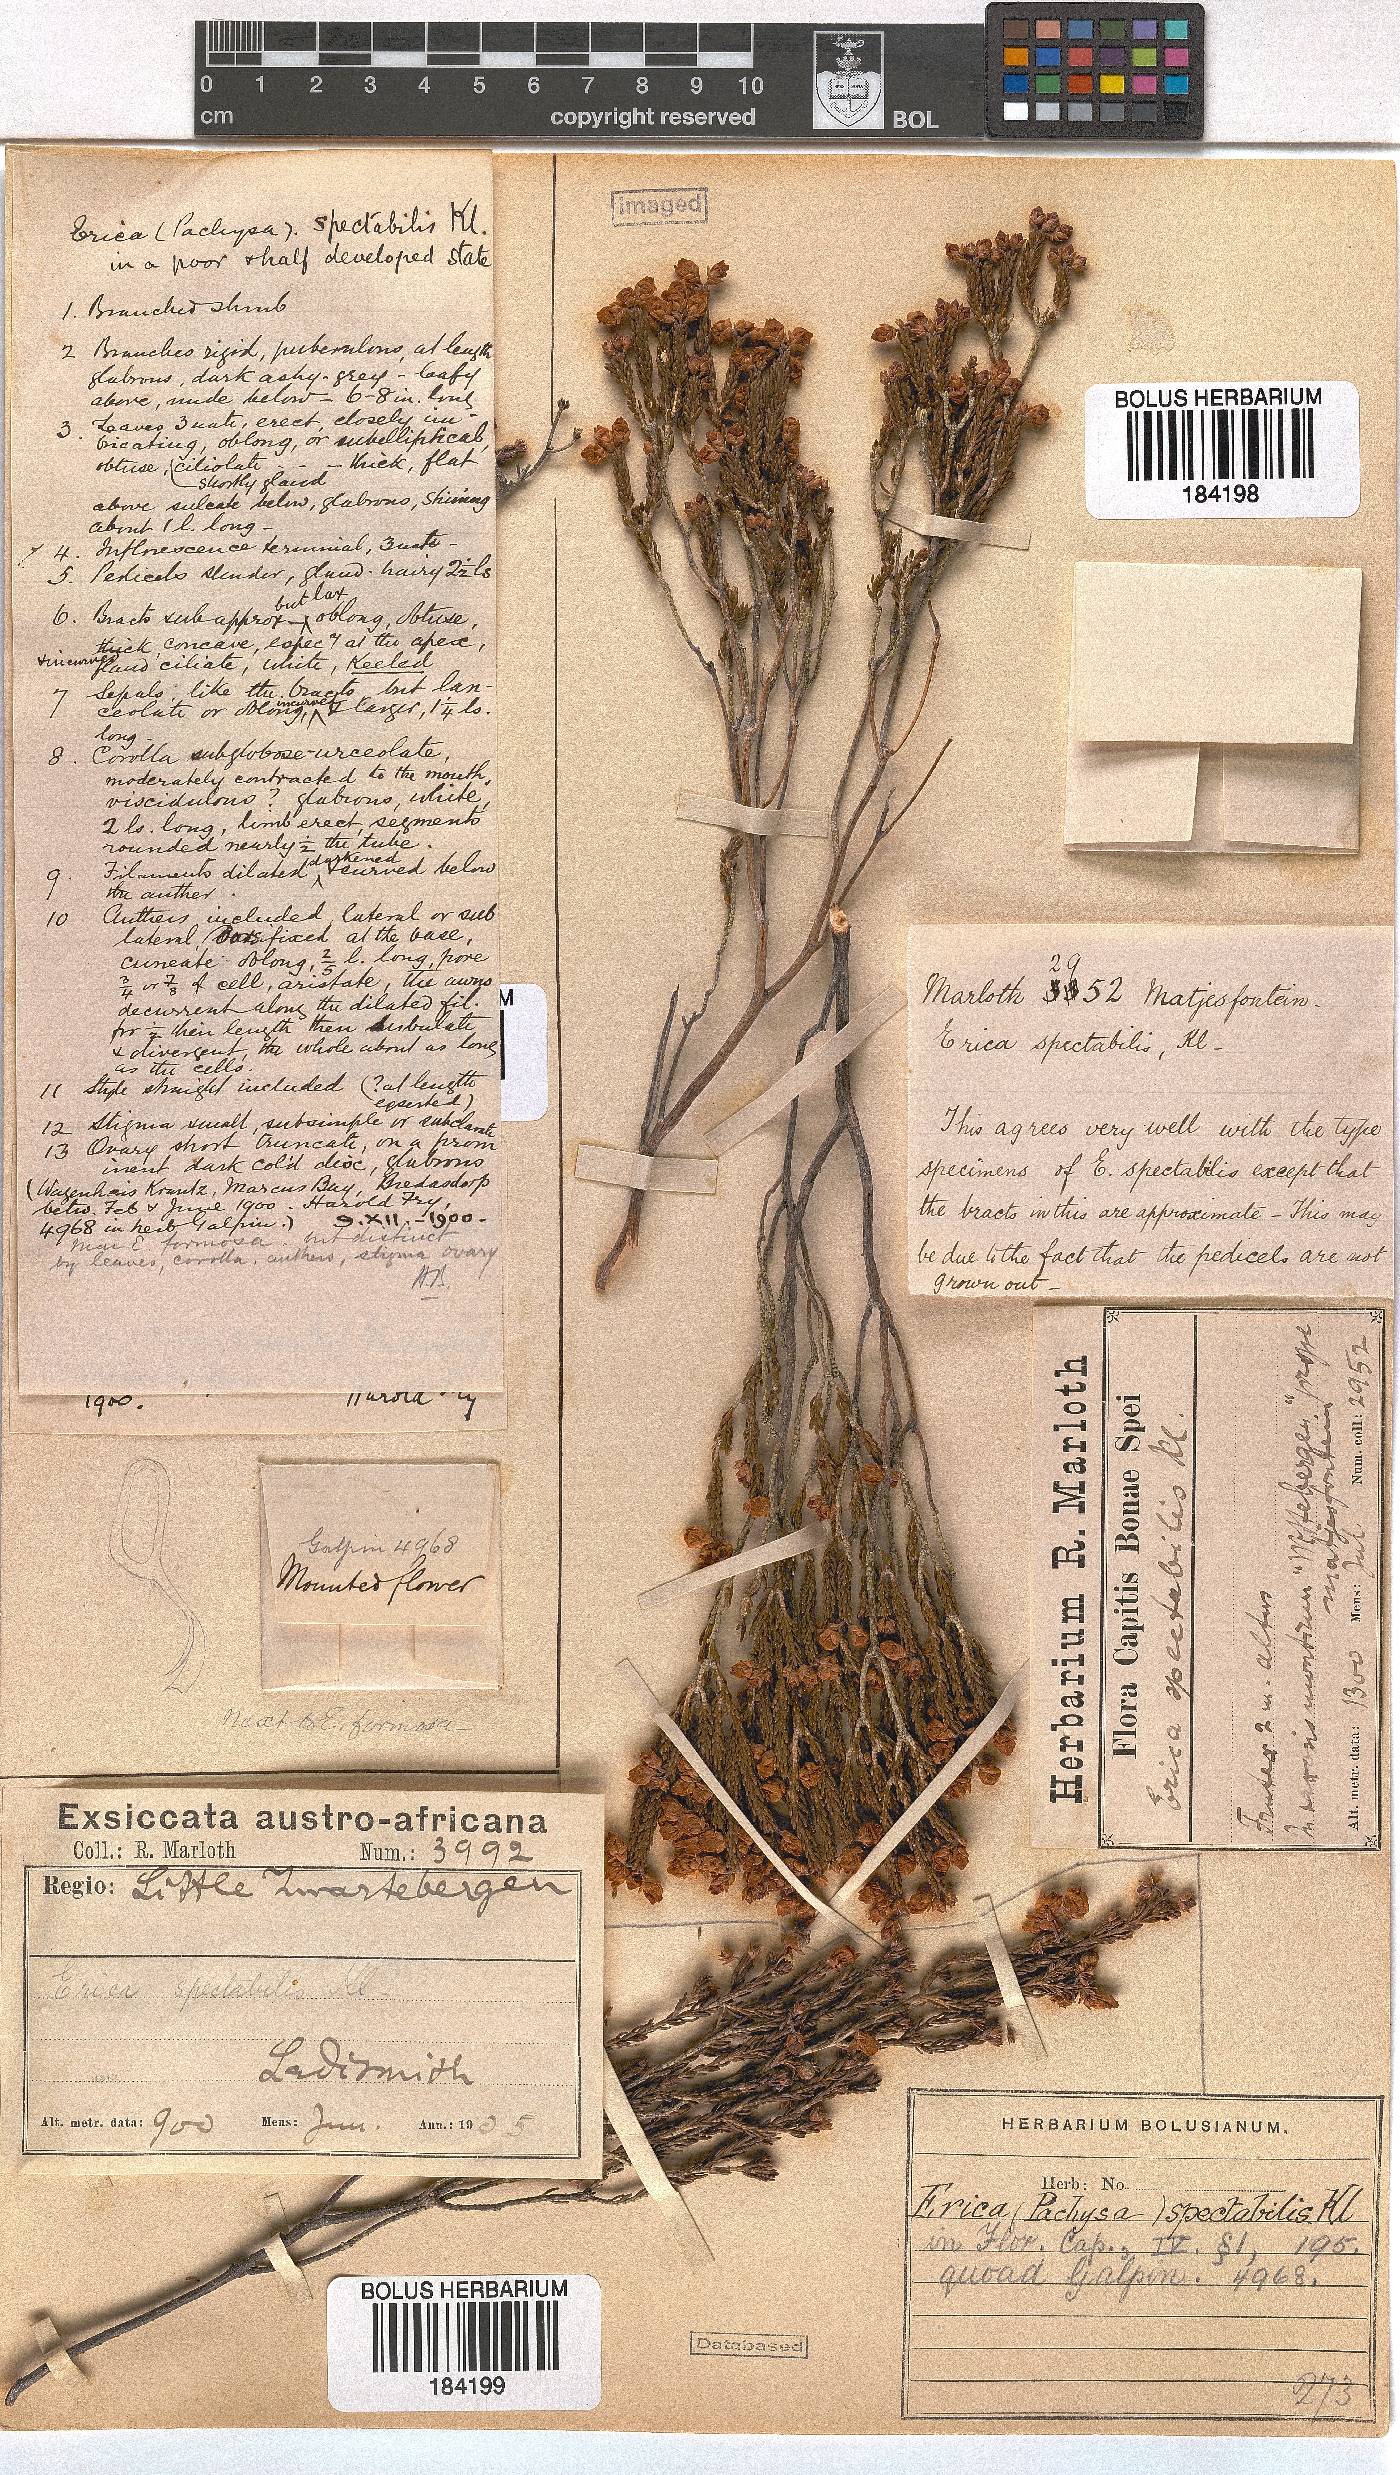 0 1 2 3 4 5 6 7 8 9 10
cm
copyright reserved
BOL
imaged
Erica (Pachysa). spectabilis Kl.
in a poor & half developed state
1. Branched shrub
2 Branches rigid, puberulous, at length
glabrous, dark ashy-grey - leafy
above, nude below - 6-8 in. long
3. Leaves 3nate, erect, closely im-
bricating, oblong, or subelliptical,
obtuse, (ciliolate - - - thick, flat
shortly gland
above sulcate below, glabrous, shining
about 1 l. long -
4. Inflorescence terminal, 3nate -
5. Pedicels slender, gland-hairy 2½ ls
but lax
6. Bracts sub approx - oblong, obtuse,
thick, concave, especy at the apex,
& incurved
gland ciliate, white, keeled
7 Sepals, like the bracts, but lan-
ceolate or oblong, incurved & larger, 1¼ ls.
long -
8. Corolla subglobose-urceolate,
moderately contracted to the mouth,
viscidulous? glabrous, white,
2 ls. long, limb erect, segments
rounded nearly ½ the tube.
9. Filaments dilated, darkened & curved below
the anther.
10 Anthers included, lateral or sub
lateral, fixed at the base,
cuneate oblong, ⅖ l. long, pore
¾ or ⅞ of cell, aristate, the awns
decurrent along the dilated fil.
for ½ their length then subulate
& divergent, the whole about as long
as the cells.
11 Style straight included (? at length
exserted)
12 Stigma small, subsimple or subclavate
13 Ovary short truncate, on a prom
inent dark col'd disc, glabrous
(Wagenhuis Krantz, Marcus Bay, Bredasdorp
betw. Feb & June 1900. Harold Fry,
4968 in herb Galpin.) 9.XII.-1900.
near E formosa. but distinct
by leaves, corolla, anthers, stigma ovary
HB.
1900. Harold Fry
Galpin 4968
Mounted flower
Next to E. formosa -
BOLUS HERBARIUM
184198
29
Marloth 52 Matjesfontein -
Erica spectabilis, Kl -
This agrees very well with the type
specimens of E. spectabilis except that
the bracts in this are approximate - This may
be due to the fact that the pedicels are not
grown out -
Herbarium R. Marloth
Flora Capitis Bonae Spei
Erica spectabilis Kl.
Frutex 2 m. altus
In montium "Witteberge" prope
Matjesfontein
Alt. metr. data: 1300 Mens: Jul. Num. coll: 2952
Exsiccata austro-africana
Coll.: R. Marloth Num.: 3992
Regio: Little Zwartebergen
Erica spectabilis Kl -
Ladismith
Alt. metr. data: 900 Mens: Jun. Ann.: 1905
BOLUS HERBARIUM
184199
Databased
HERBARIUM BOLUSIANUM.
Herb: No.
Erica (Pachysa) spectabilis Kl
in Flor. Cap., IV. §1, 195.
quoad Galpin. 4968.
273